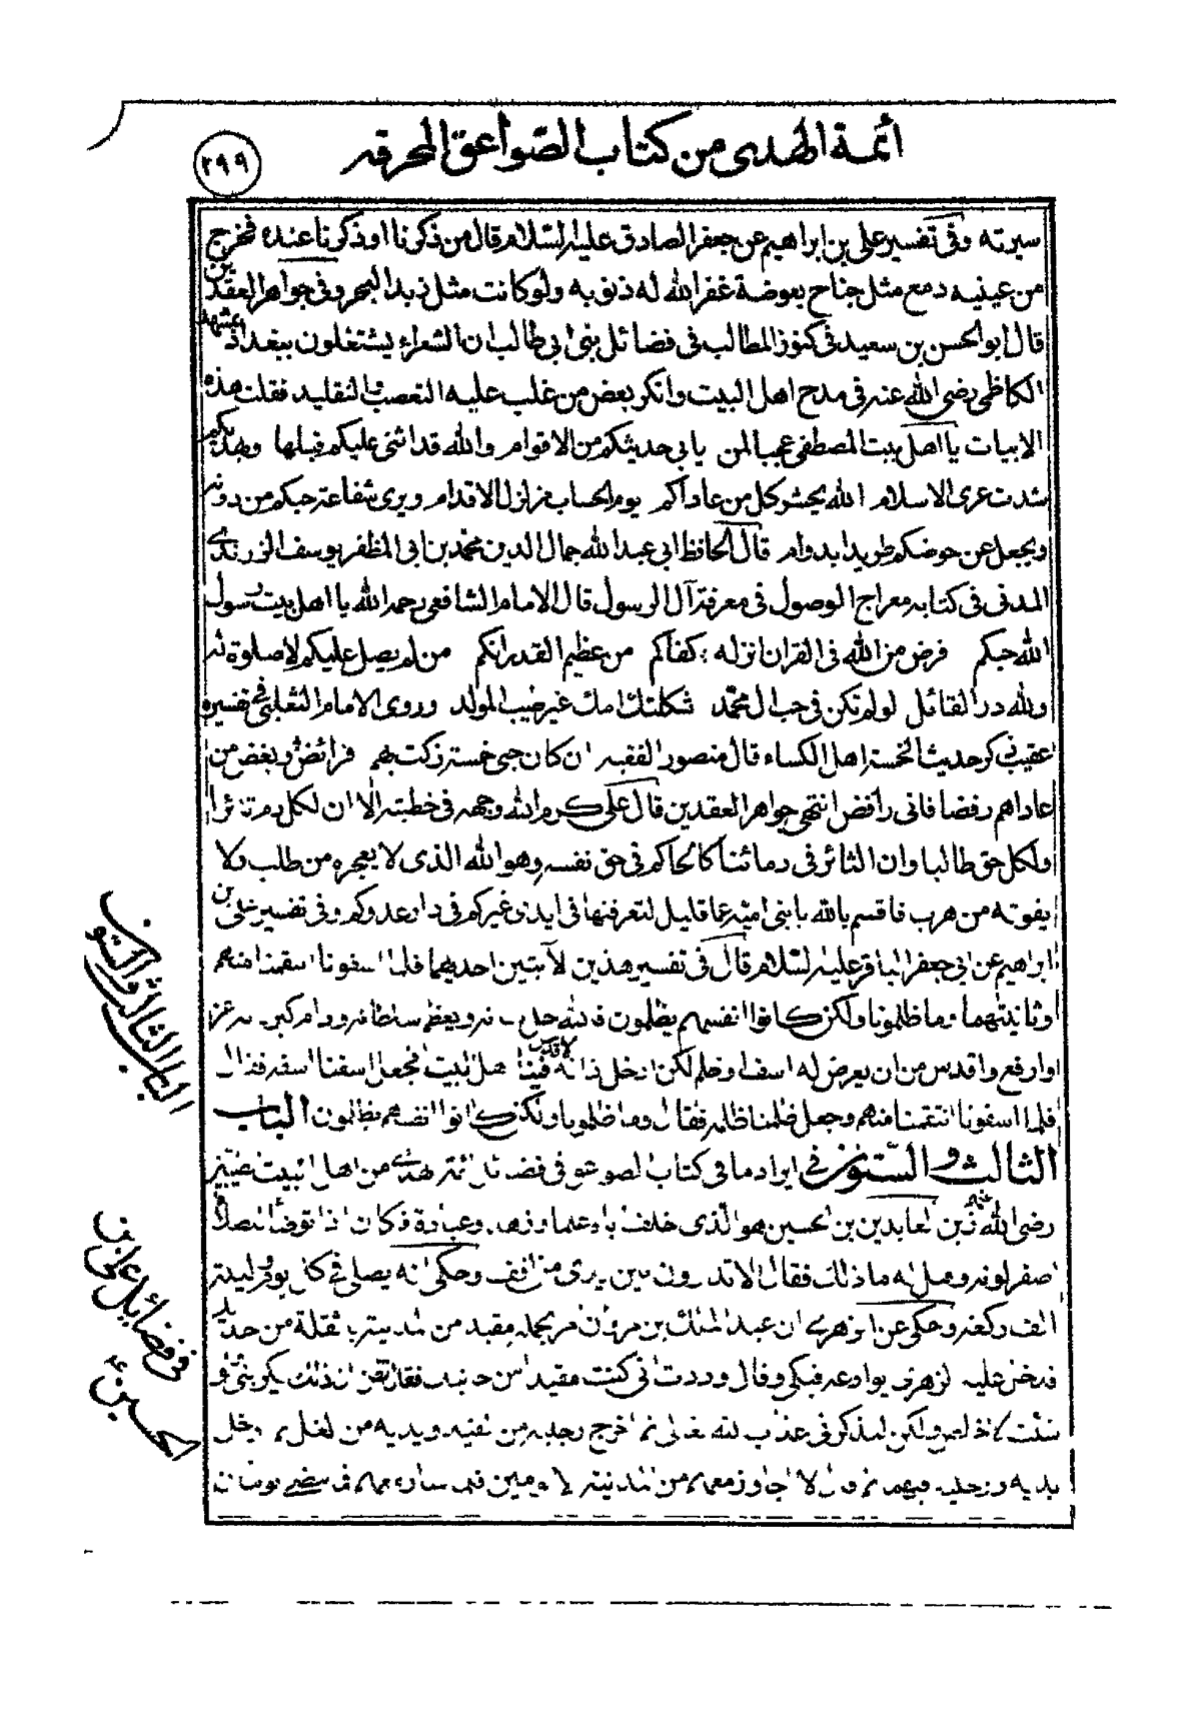 أئمة الهدى من كتاب الصواعق المحرقة
٢٩٩
سيرته وفى تفسير على بن ابراهيم عن جعفر الصادق عليه السلام قال من ذكرنا او ذكرنا عنده فخرج
من عينيه دمع مثل جناح بعوضة غفر الله له ذنوبه ولو كانت مثل زبد البحر وفى جواهر العقدين
قال ابو الحسن بن سعيد فى كنوز المطالب فى فضائل بنى ابى طالب ان الشعراء يشتغلون ببغداد بمشهد
الكاظم رضى الله عنه فى مدح اهل البيت وانكر بعض من غلب عليه التعصب والتقليد فقلت هذه
الابيات يا اهل بيت المصطفى عجبا لمن يابى حديثكم من الاقوام والله قد اثنى عليكم قبلها وبهديكم
شدت عرى الاسلام الله يحشر كل من عاداكم يوم الحساب مزلزل الاقدام ويرى شفاعة جدكم من دونه
ويجعل عن حوضكم طريدا بدوام قال الحافظ ابى عبد الله جمال الدين محمد بن ابى المظفر يوسف الزرندى
المدنى فى كتابه معراج الوصول فى معرفة آل الرسول قال الامام الشافعى رحمه الله يا اهل بيت رسول
الله حبكم فرض من الله فى القران انزله كفاكم من عظيم القدر انكم من لم يصل عليكم لا صلوة له
ولله در القائل لو لم تكن فى حب ال محمد ثكلتك امك غير طيب المولد وروى الامام الثعلبى فى تفسيره
عقيب ذكر حديث الخمسة اهل الكساء قال منصور الفقيه ان كان حبى خمسة زكت بهم فرائضى وبغض من
عاداهم رفضا فانى رافضى انتهى جواهر العقدين قال على كرم الله وجهه فى خطبته الا ان لكل دم ثائرا
ولكل حق طالبا وان الثائر فى دمائنا كالحاكم فى حق نفسه وهو الله الذى لا يعجزه من طلب ولا
يفوته من هرب فاقسم بالله يا بنى امية عما قليل لتعرفنها فى ايدى غيركم فى دار عدوكم وفى تفسير على بن
ابراهيم عن ابى جعفر الباقر عليه السلام قال فى تفسير هذين الآيتين احديهما فلما اسفونا انتقمنا منهم
وثانيتهما وما ظلمونا ولكن كانوا انفسهم يظلمون ان الله جل شانه وعظم سلطانه ودام كبريائه اعز
او ارفع واقدس من ان يعرض له اسف او ظلم لكن ادخل ذاته الاقدس فينا اهل البيت فجعل اسفنا اسفه فقال
فلما اسفونا انتقمنا منهم وجعل ظلمنا ظلمه فقال وما ظلمونا ولكن كانوا انفسهم يظلمون الباب
الثالث والستون فى ايراد ما فى كتاب الصواعق فى فضائل ائمة الهدى من اهل البيت الطيبين
رضى الله عنهم زين العابدين بن الحسين هو الذى خلف اباه علما وزهدا وعبادة فكان اذا توضأ للصلاة
اصفر لونه وقيل له ما ذلك فقال الا تدرون بين يدى من اقف وحكى انه يصلى فى كل يوم وليلة
الف ركعة وحكى عن الزهرى ان عبد الملك بن مروان امر بحمله مقيدا من المدينة بثقلة من حديد
فدخل عليه الزهرى يوادعه فبكى وقال وددت انى كنت مقيدا من جانبك فقال تظن ان ذلك يكربنى لو
شئت لما كان ولكن ليذكرنى عذاب الله تعالى ثم اخرج رجليه من القيد ويديه من الغل ثم ادخل
يديه ورجليه فيهما ثم قال لا اجاوز معهم من المدينة الا يومين فلما
الباب الثالث والستون
فى فضائل على بن
الحسين ع